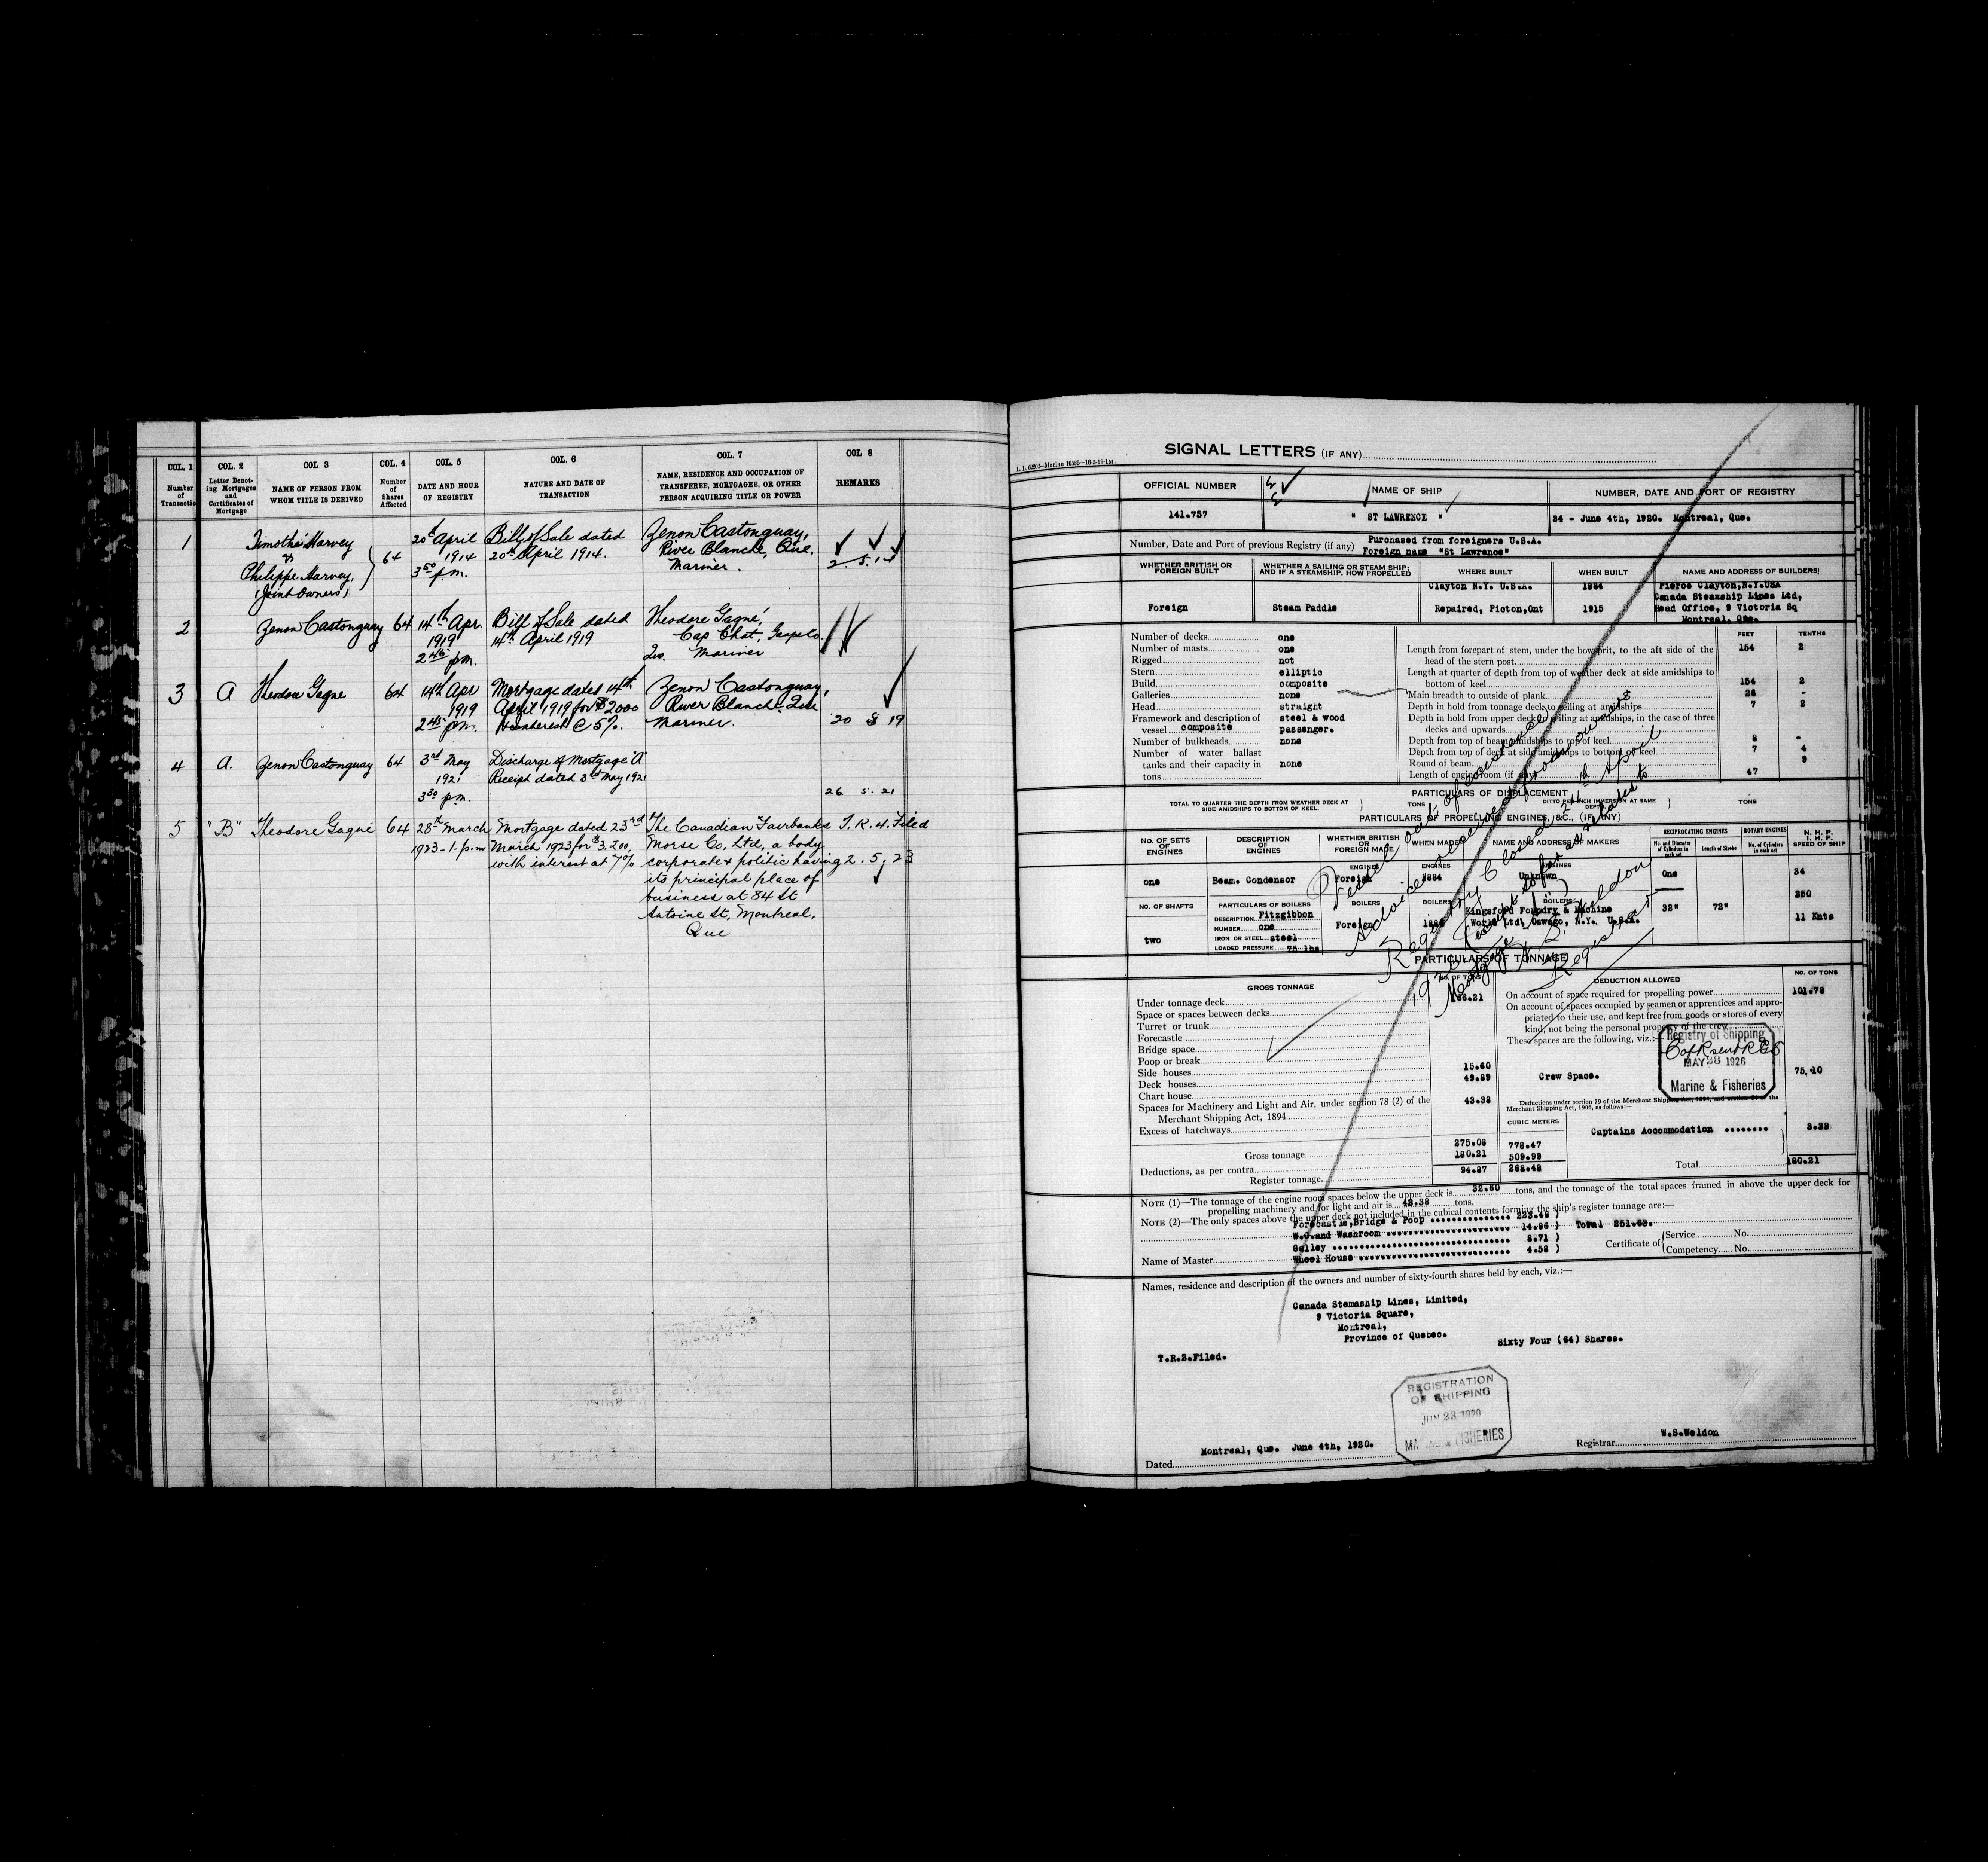 COL. 1 COL. 2 COL 3 COL. 4 COL. 5 COL. 6 COL. 7 COL 8
Number of Transaction
Letter Denoting Mortgages and Certificates of Mortgage
NAME OF PERSON FROM WHOM TITLE IS DERIVED
Number of Shares Affected
DATE AND HOUR OF REGISTRY
NATURE AND DATE OF TRANSACTION
NAME, RESIDENCE AND OCCUPATION OF TRANSFEREE, MORTGAGES, OR OTHER PERSON ACQUIRING TITLE OR POWER
REMARKS
1 Timothé Harvey 20th April Bill of Sale dated Zenon Castonguay,
& 64 1914 20th April 1914. River Blanche, Que.
Philippe Harvey, 3 50 p.m. Mariner. 2. 5. 14
(Joint Owners)
2 Zenon Castonguay 64 14th Apr. Bill of Sale dated Theodore Gagné,
1919 14th April 1919 Cap Chat, Gaspe Co.
2 45 p.m. Que. Mariner
3 A Theodore Gagne 64 14th Apr Mortgage dated 14th Zenon Castonguay,
1919 April 1919 for $2000 River Blanche, Que
2 45 p.m. & interest @ 5%. Mariner. 20 8 19
4 A. Zenon Castonguay 64 3rd May Discharge of Mortgage "A"
1921 Receipt dated 3rd May 1921
3 30 p.m. 26 5. 21
5 "B" Theodore Gagné 64 28th March Mortgage dated 23rd The Canadian Fairbanks T. R. 4. Filed
1923-1. p.m March 1923 for $3,200, Morse Co. Ltd, a body
with interest at 7% corporate & politic having 2. 5, 23
its principal place of
business at 84 St
Antoine St, Montreal,
Que
SIGNAL LETTERS (IF ANY)
OFFICIAL NUMBER NAME OF SHIP NUMBER, DATE AND PORT OF REGISTRY
141.757 " ST LAWRENCE " 34 - June 4th, 1920. Montreal, Que.
Number, Date and Port of previous Registry (if any) Purchased from foreigners U.S.A.
Foreign name "St Lawrence"
WHETHER BRITISH OR FOREIGN BUILT
WHETHER A SAILING OR STEAM SHIP; AND IF A STEAMSHIP, HOW PROPELLED
WHERE BUILT WHEN BUILT NAME AND ADDRESS OF BUILDERS
Clayton N.Y. U.S.A. 1884 Pierce Clayton,N.Y.USA
Canada Steamship Lines Ltd,
Foreign Steam Paddle Repaired, Picton,Ont 1915 Head Office, 9 Victoria Sq
Montreal, Que.
FEET TENTHS
Number of decks one
Number of masts one
Rigged not
Stern elliptic
Build composite
Galleries none
Head straight
Framework and description of steel & wood
vessel composite passenger.
Number of bulkheads none
Number of water ballast
tanks and their capacity in none
tons
Length from forepart of stem, under the bowsprit, to the aft side of the
head of the stern post 154 2
Length at quarter of depth from top of weather deck at side amidships to
bottom of keel 154 2
Main breadth to outside of plank 26 -
Depth in hold from tonnage deck to ceiling at amidships 7 2
Depth in hold from upper deck to ceiling at amidships, in the case of three
decks and upwards
Depth from top of beam amidships to top of keel 8 -
Depth from top of deck at side amidships to bottom of keel 7 4
Round of beam 9
Length of engine room (if any) 47
PARTICULARS OF DISPLACEMENT
TOTAL TO QUARTER THE DEPTH FROM WEATHER DECK AT SIDE AMIDSHIPS TO BOTTOM OF KEEL. TONS DITTO PER INCH IMMERSION AT SAME DEPTH TONS
PARTICULARS OF PROPELLING ENGINES, &C., (IF ANY)
NO. OF SETS OF ENGINES
DESCRIPTION OF ENGINES
WHETHER BRITISH OR FOREIGN MADE
WHEN MADE
NAME AND ADDRESS OF MAKERS
RECIPROCATING ENGINES ROTARY ENGINES
No. and Diameter of Cylinders in each set
Length of Stroke
No. of Cylinders in each set
N. H. P. I. H. P. SPEED OF SHIP
ENGINES ENGINES ENGINES
one Beam. Condensor Foreign 1884 Unknown One 34
NO. OF SHAFTS PARTICULARS OF BOILERS BOILERS BOILERS BOILERS 350
DESCRIPTION Fitzgibbon Kingsford Foundry & Machine 32" 72"
NUMBER one Foreign Works Ltd, Oswego, N.Y. U.S.A. 11 Knts
two IRON OR STEEL steel
LOADED PRESSURE 75 lbs
Vessel out of existence
Advice received from owners
Registry Closed 24th April
(except so far as relates to
Mortgage
W. S. Weldon
Registrar
PARTICULARS OF TONNAGE
GROSS TONNAGE NO. OF TONS DEDUCTION ALLOWED NO. OF TONS
Under tonnage deck 166.21
Space or spaces between decks
Turret or trunk
Forecastle
Bridge space
Poop or break
Side houses 15.60
Deck houses 49.89
Chart house
Spaces for Machinery and Light and Air, under section 78 (2) of the 43.38
Merchant Shipping Act, 1894
Excess of hatchways
Gross tonnage 275.08 778.47
Deductions, as per contra 180.21 509.99
Register tonnage 94.87 268.48
CUBIC METERS
On account of space required for propelling power 101.78
On account of spaces occupied by seamen or apprentices and appro-
priated to their use, and kept free from goods or stores of every
kind, not being the personal property of the crew
These spaces are the following, viz.:—
Crew Space. 75.10
Registry of Shipping
MAY 28 1926
Marine & Fisheries
Deductions under section 79 of the Merchant Shipping Act, 1894, and section 54 of the
Merchant Shipping Act, 1906, as follows:—
Captains Accommodation 3.33
Total 180.21
NOTE (1)—The tonnage of the engine room spaces below the upper deck is 32.60 tons, and the tonnage of the total spaces framed in above the upper deck for
propelling machinery and for light and air is 43.38 tons.
NOTE (2)—The only spaces above the upper deck not included in the cubical contents forming the ship's register tonnage are:—
Forecastle,Bridge & Poop 223.48 )
W.C.and Washroom 14.86 ) Total 251.63.
Galley 8.71 )
Wheel House 4.58 )
Name of Master
Certificate of Service No.
Competency No.
Names, residence and description of the owners and number of sixty-fourth shares held by each, viz.:—
Canada Stemaship Lines, Limited,
9 Victoria Square,
Montreal,
Province of Quebec.
Sixty Four (64) Shares.
T.R.2.Filed.
REGISTRATION
OF SHIPPING
JUN 23 1920
MARINE & FISHERIES
Montreal, Que. June 4th, 1920.
Dated
Registrar W.S.Weldon